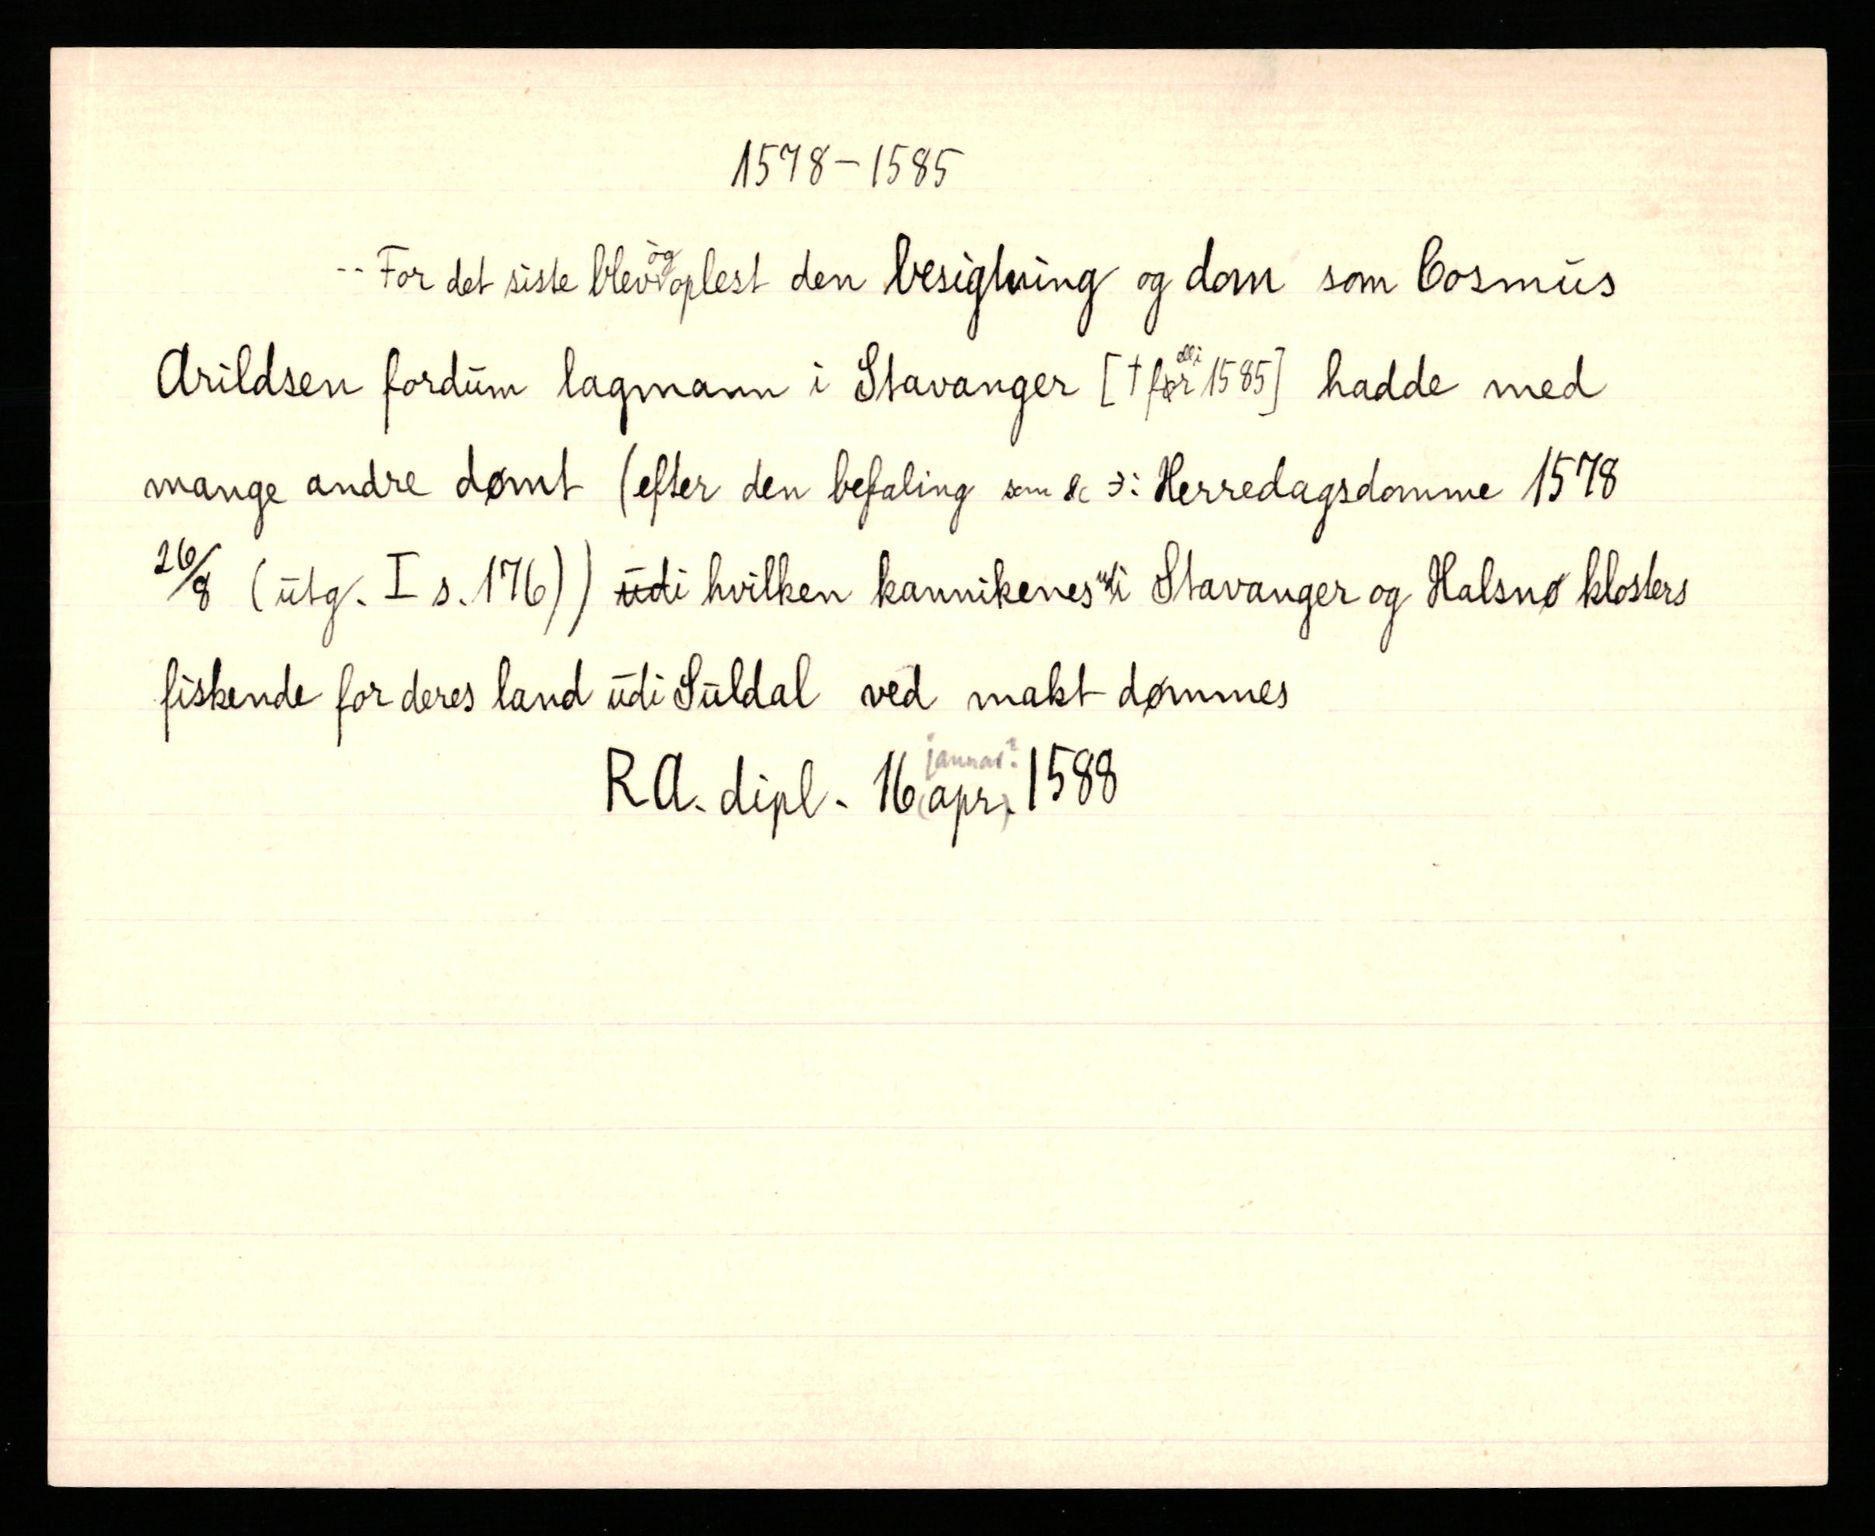 1578-1585
-- For det siste blev òg oplest den besigtning og dom som Cosmus
Arildsen fordum lagmann i Stavanger [† før ell. i 1585] hadde med
mange andre dømt (efter den befaling som &c ɔ: Herredagsdomme 1578
26/8 (utg. I s. 176)) udi hvilken kannikenes udi Stavanger og Halsnø klosters
fiskende for deres land udi Suldal ved makt dømmes
januar?
RA. dipl. 16 (apr.) 1588